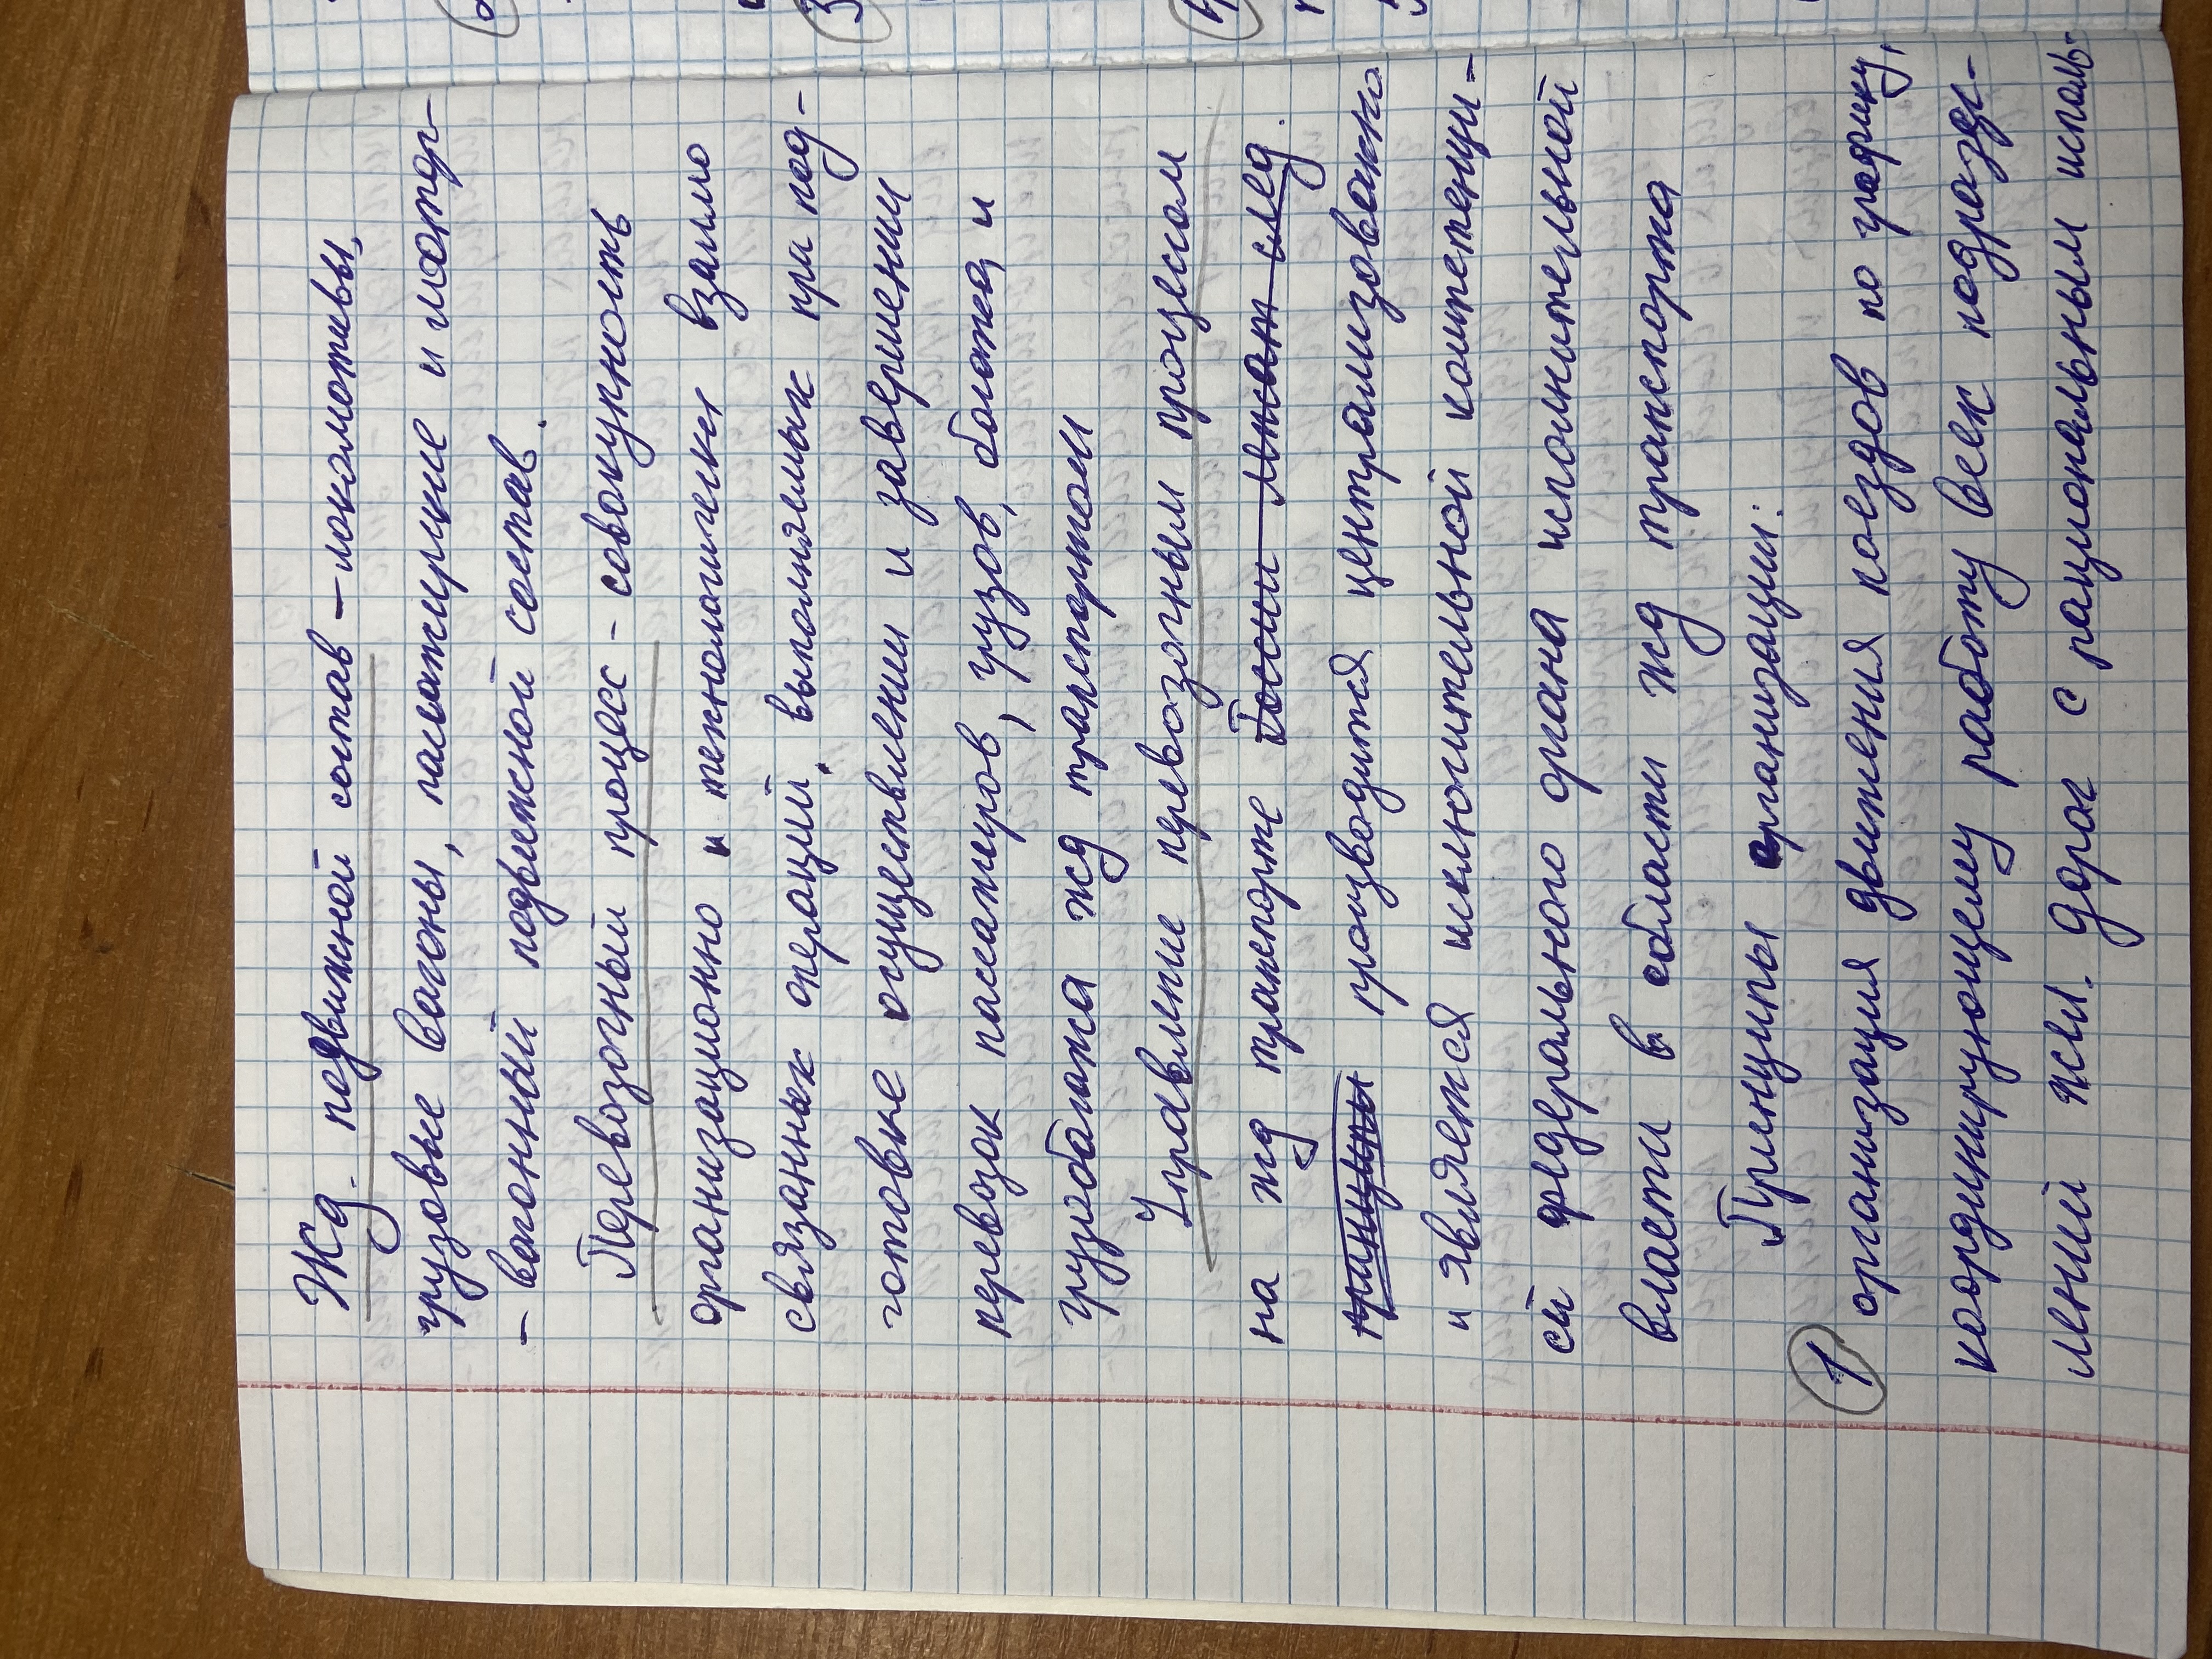 Жд. подвижной состав – локомотивы,
грузовые вагоны, пассажирские и мотор-
– вагонный подвежной состав.
Перевозочный процесс – совокупность
организационно и технологически взаимо
связанных операций, выполняемых при под-
готовке осуществлении и завершении
перевозок пассажиров, грузов, багажа, и
грузобагажа жд транспортом
Управление перевозочным процессом
на жд транспорте Госни лежат след.
принципы производится централизованно
и является исключительной компетенци-
ей федерального органа исполнительной
власти в области жд транспорта
Принципы организации:
1 организация движения поездов по графику,
координирующему работу всех подразде-
лений жел. дорог с рациональным исполь-